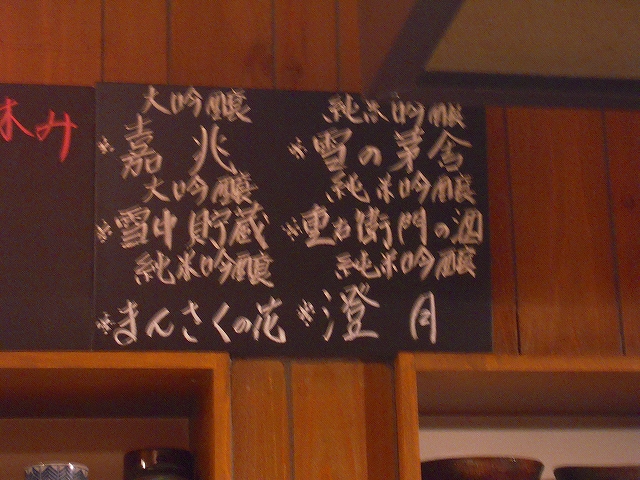 休み
大吟醸
※嘉兆
大吟醸
※雪中貯蔵
純米吟醸
※まんさくの花
純米吟醸
※雪の茅舎
純米吟醸
※重右衛門の酒
純米吟醸
※澄月